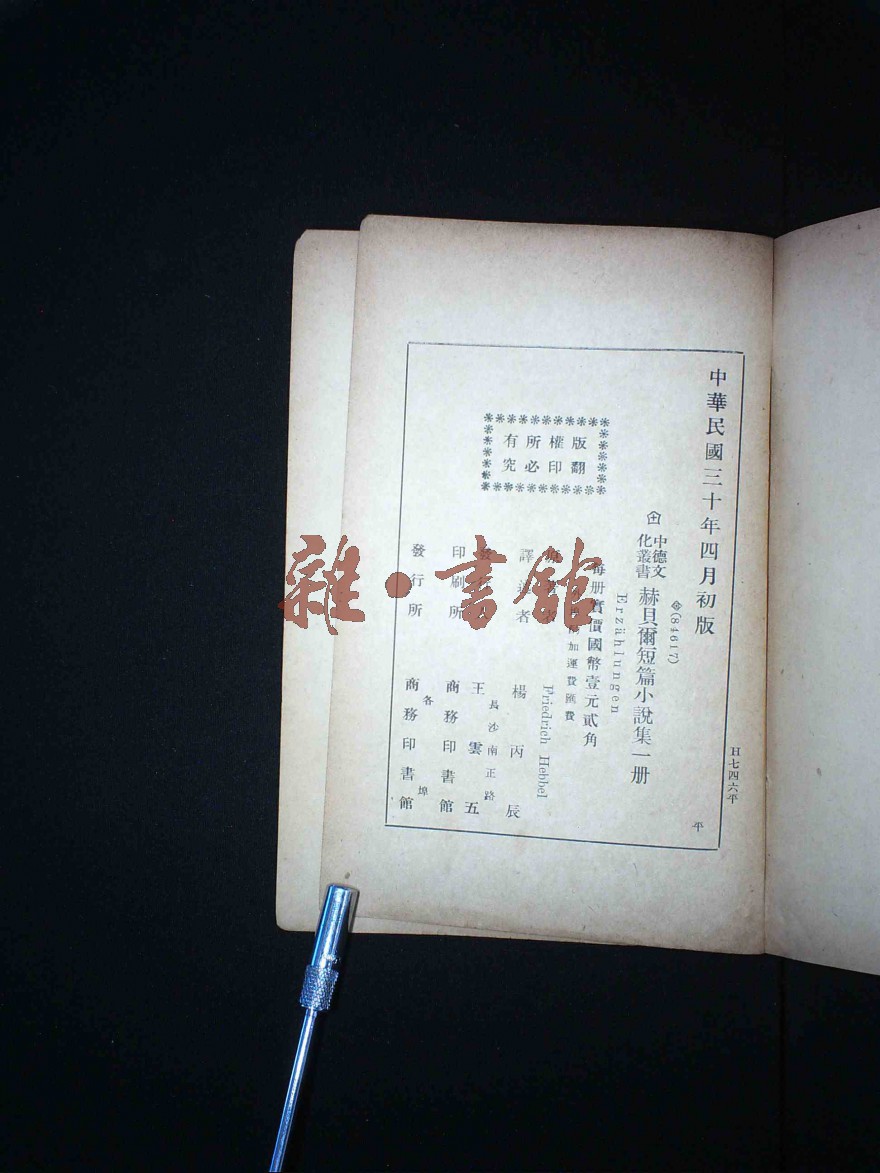 中華民國三十年四月初版
(84617)
中德文化叢書 赫貝爾短篇小說集一册
Erzählungen
每册實價國幣壹元貳角
加運費匯費
Friedrich Hebbel
譯述者 楊丙辰
王雲五
長沙南正路
印刷所 商務印書館
發行所 商務印書館
各埠
版權所有
翻印必究
平
雜·書館